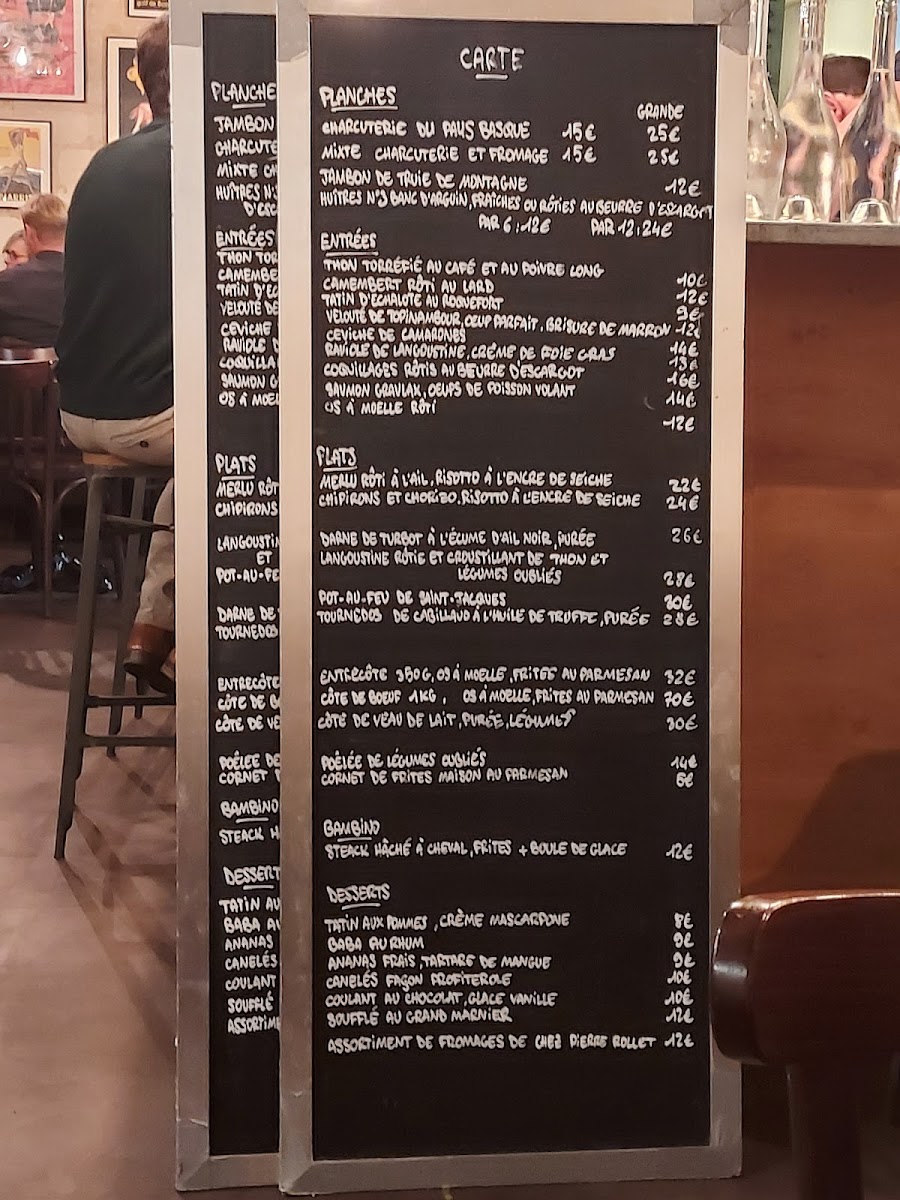 PLANCHE
JAMBON
CHARCUTE
MIXTE CH
HUÎTRES N°3
D'ESC
ENTRÉES
THON TOR
CAMEMBE
TATIN D'EC
VELOUTÉ DE
CEVICHE
RAVIOLE D
COQUILLA
SAUMON G
OS À MOEL
PLATS
MERLU RÔT
CHIPIRONS
LANGOUSTIN
ET
POT-AU-FE
DARNE DE
TOURNEDOS
ENTRECÔTE
CÔTE DE B
CÔTE DE VE
POÊLÉE DE
CORNET
BAMBINO
STEACK H
DESSERT
TATIN AU
BABA AU
ANANAS
CANELÉS
COULANT
SOUFFLÉ
ASSORTIME
CARTE
PLANCHES GRANDE
CHARCUTERIE DU PAYS BASQUE 15€ 25€
MIXTE CHARCUTERIE ET FROMAGE 15€ 25€
JAMBON DE TRUIE DE MONTAGNE 12€
HUÎTRES N°3 BANC D'ARGUIN, FRAÎCHES OU RÔTIES AU BEURRE D'ESCARGOT
PAR 6 : 12€ PAR 12 : 24€
ENTRÉES
THON TORRÉFIÉ AU CAFÉ ET AU POIVRE LONG 10€
CAMEMBERT RÔTI AU LARD 12€
TATIN D'ECHALOTE AU ROQUEFORT 9€
VELOUTÉ DE TOPINAMBOUR, OEUF PARFAIT, BRISURE DE MARRON 12€
CEVICHE DE CAMARONES 14€
RAVIOLE DE LANGOUSTINE, CRÈME DE FOIE GRAS 15€
COQUILLAGES RÔTIS AU BEURRE D'ESCARGOT 16€
SAUMON GRAVLAX, OEUFS DE POISSON VOLANT 14€
OS À MOELLE RÔTI 12€
PLATS
MERLU RÔTI À L'AIL, RISOTTO À L'ENCRE DE SEICHE 22€
CHIPIRONS ET CHORIZO, RISOTTO À L'ENCRE DE SEICHE 24€
DARNE DE TURBOT À L'ÉCUME D'AIL NOIR, PURÉE 26€
LANGOUSTINE RÔTIE ET CROUSTILLANT DE THON ET
LÉGUMES OUBLIÉS 28€
POT-AU-FEU DE SAINT-JACQUES 30€
TOURNEDOS DE CABILLAUD À L'HUILE DE TRUFFE, PURÉE 28€
ENTRECÔTE 350G, OS À MOELLE, FRITES AU PARMESAN 32€
CÔTE DE BOEUF 1KG, OS À MOELLE, FRITES AU PARMESAN 70€
CÔTE DE VEAU DE LAIT, PURÉE, LÉGUMES 30€
POÊLÉE DE LÉGUMES OUBLIÉS 14€
CORNET DE FRITES MAISON AU PARMESAN 6€
BAMBINO
STEACK HÂCHÉ À CHEVAL, FRITES + BOULE DE GLACE 12€
DESSERTS
TATIN AUX POMMES, CRÈME MASCARPONE 8€
BABA AU RHUM 9€
ANANAS FRAIS, TARTARE DE MANGUE 9€
CANELÉS FAÇON PROFITEROLE 10€
COULANT AU CHOCOLAT, GLACE VANILLE 10€
SOUFFLÉ AU GRAND MARNIER 12€
ASSORTIMENT DE FROMAGES DE CHEZ PIERRE ROLLET 12€